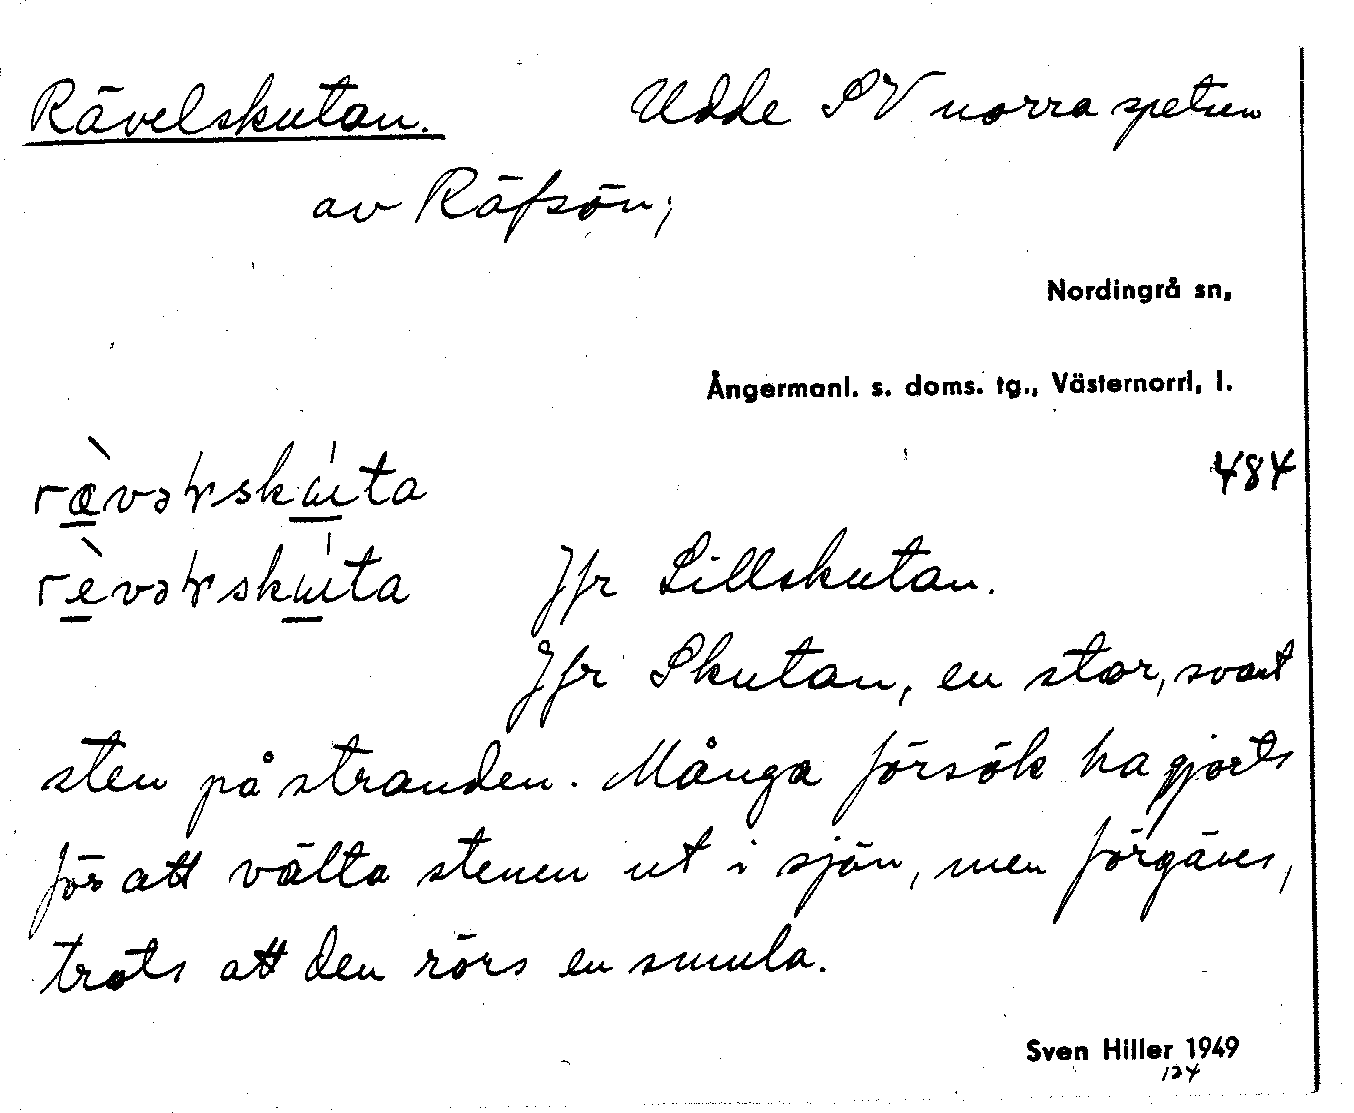 Rävelskutan. Udde SV norra spetsen
av Räfsön;
Nordingrå sn,
Ångermanl. s. doms. tg., Västernorrl, l.
484
Jfr Lillskutan.
Jfr Skutan, en stor, svart
sten på stranden. Många försök ha gjorts
för att välta stenen ut i sjön, men förgäves,
trots att den rörs en smula.
Sven Hiller 1949
124